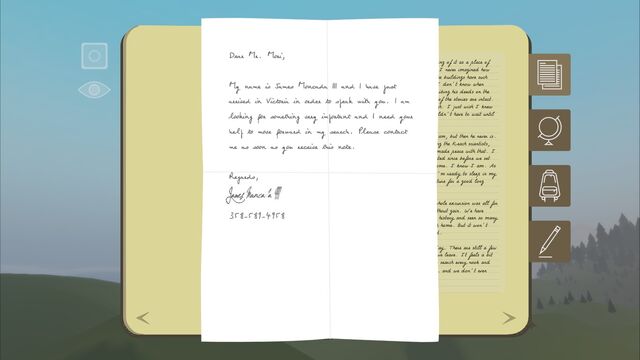 Dear Mr. Mori,
My name is James Moncada III and I have just
arrived in Victoria in order to speak with you. I am
looking for something very important and I need your
help to move forward in my search. Please contact
me as soon as you receive this note.
Regards,
James Moncada III
358-589-4958
ng of it as a place of
I never imagined how
buildings have such
don't know when
ding his deeds on the
of the stories are intact
I just wish I knew
ldn't have to wait until
son, but then he never is.
ng the K-each scientists,
made peace with that. I
ted since before we set
ome. I know I am. As
I'm ready to sleep in my
time for a good long
hole excursion was all for
thout gain. We have
history and seen so many
home. But it won't
day. There are still a few
we leave. It feels a bit
search every nook and
and we don't even